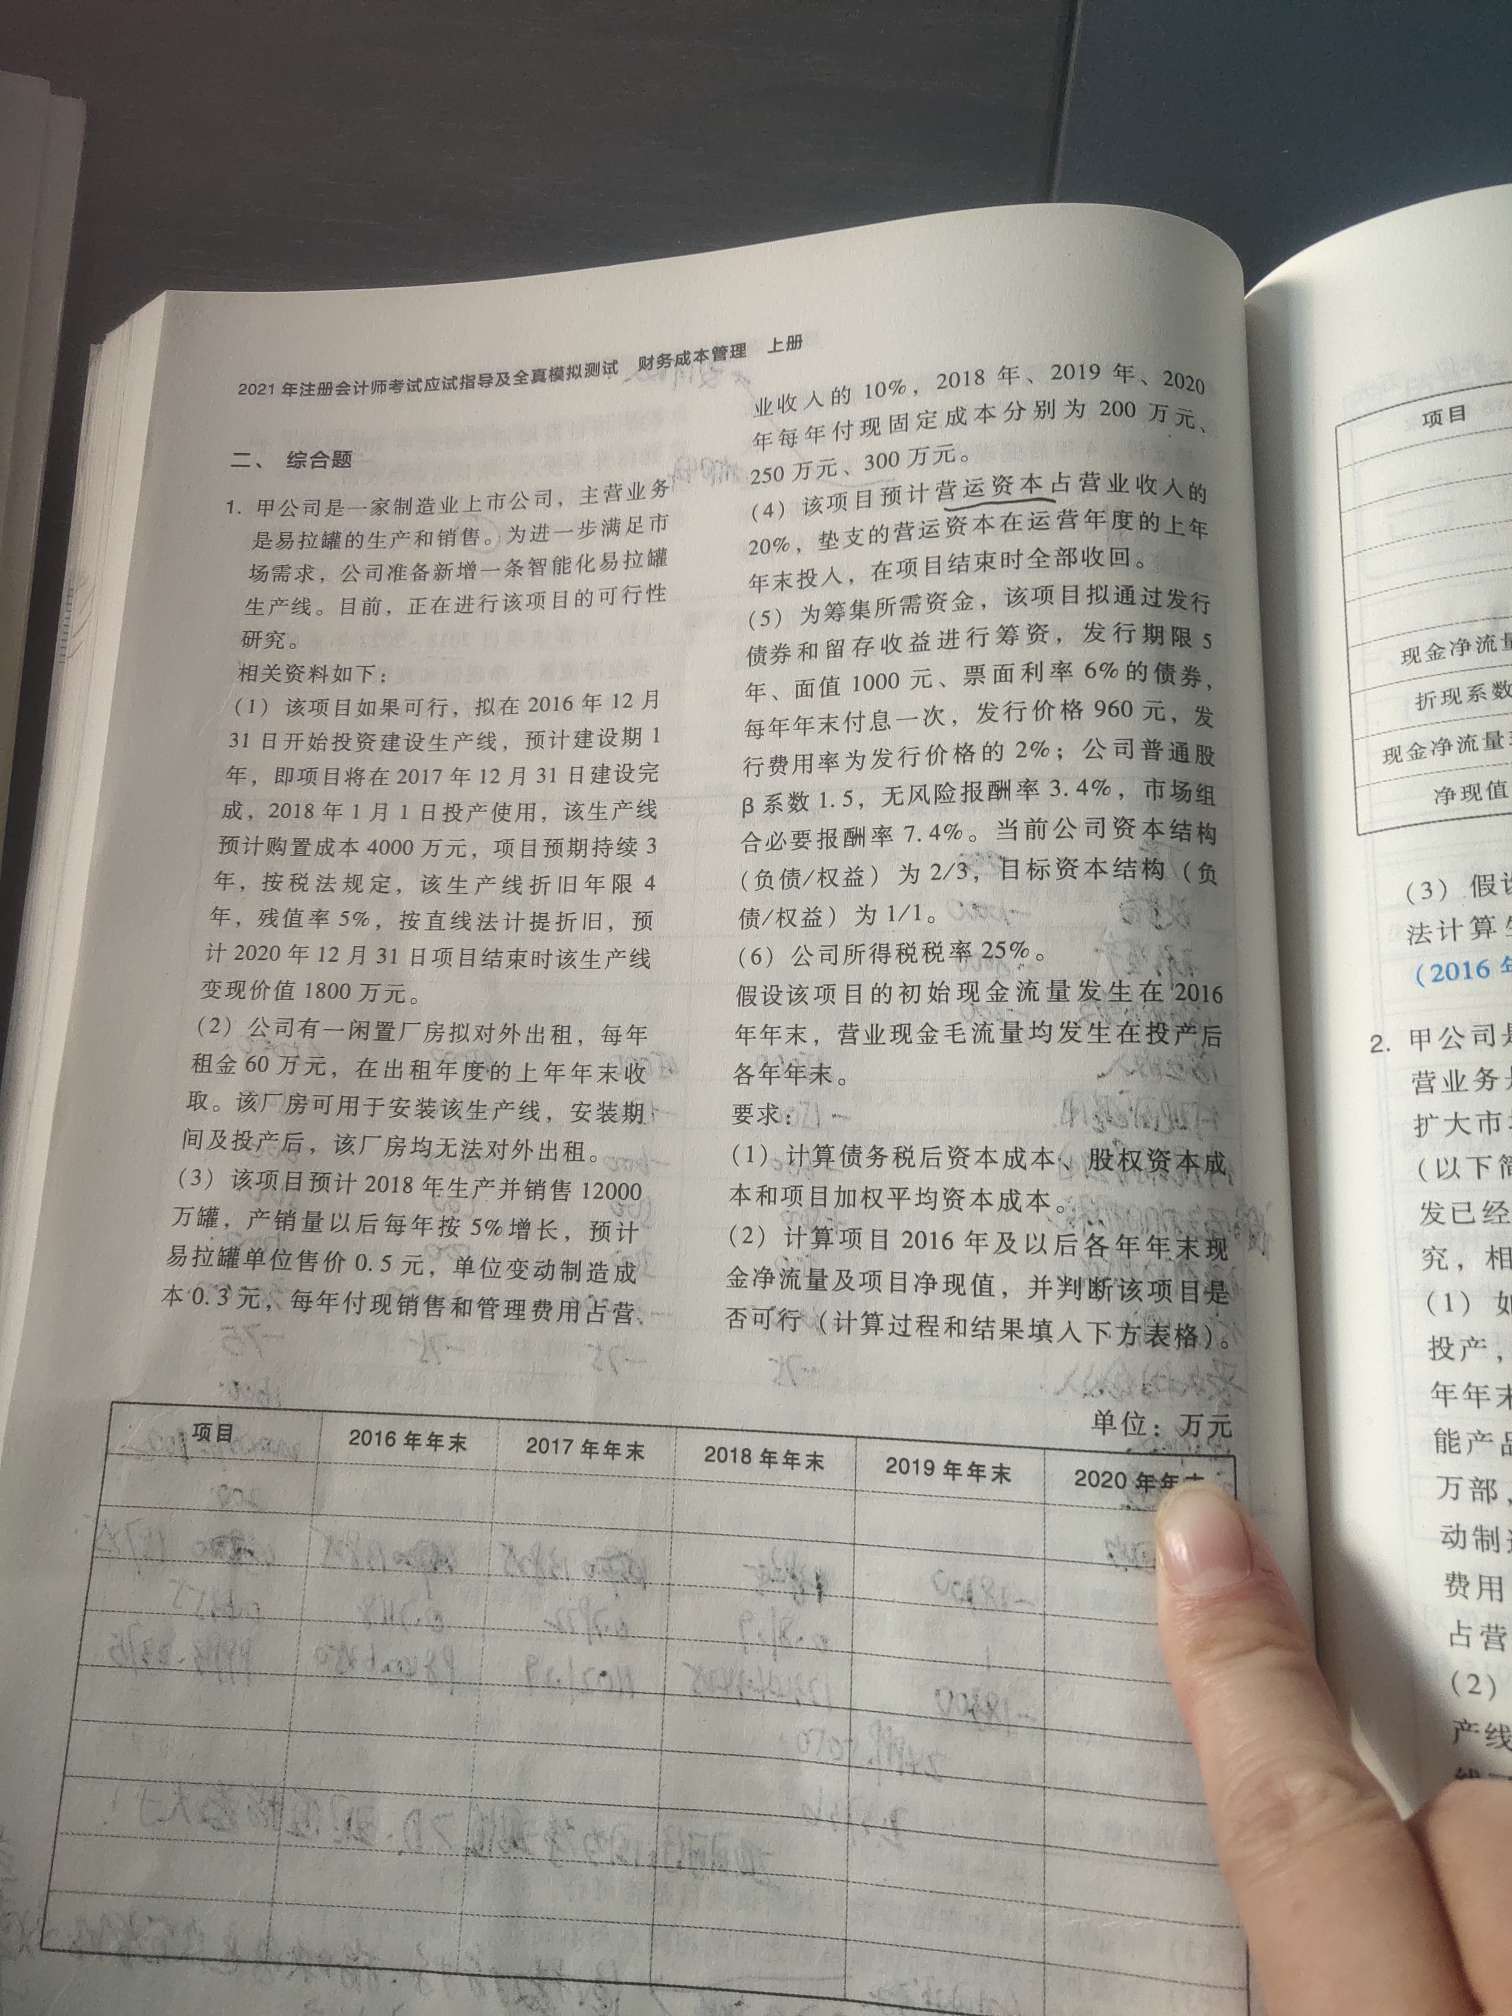 2021年注册会计师考试应试指导及全真模拟测试 财务成本管理 上册
二、综合题
1. 甲公司是一家制造业上市公司，主营业务
是易拉罐的生产和销售。为进一步满足市
场需求，公司准备新增一条智能化易拉罐
生产线。目前，正在进行该项目的可行性
研究。
相关资料如下：
（1）该项目如果可行，拟在2016年12月
31日开始投资建设生产线，预计建设期1
年，即项目将在2017年12月31日建设完
成，2018年1月1日投产使用，该生产线
预计购置成本4000万元，项目预期持续3
年，按税法规定，该生产线折旧年限4
年，残值率5%，按直线法计提折旧，预
计2020年12月31日项目结束时该生产线
变现价值1800万元。
（2）公司有一闲置厂房拟对外出租，每年
租金60万元，在出租年度的上年年末收
取。该厂房可用于安装该生产线，安装期
间及投产后，该厂房均无法对外出租。
（3）该项目预计2018年生产并销售12000
万罐，产销量以后每年按5%增长，预计
易拉罐单位售价0.5元，单位变动制造成
本0.3元，每年付现销售和管理费用占营
业收入的10%，2018年、2019年、2020
年每年付现固定成本分别为200万元、
250万元、300万元。
（4）该项目预计营运资本占营业收入的
20%，垫支的营运资本在运营年度的上年
年末投入，在项目结束时全部收回。
（5）为筹集所需资金，该项目拟通过发行
债券和留存收益进行筹资，发行期限5
年、面值1000元、票面利率6%的债券，
每年年末付息一次，发行价格960元，发
行费用率为发行价格的2%；公司普通股
β系数1.5，无风险报酬率3.4%，市场组
合必要报酬率7.4%。当前公司资本结构
（负债/权益）为2/3，目标资本结构（负
债/权益）为1/1。
（6）公司所得税税率25%。
假设该项目的初始现金流量发生在2016
年年末，营业现金毛流量均发生在投产后
各年年末。
要求：
（1）计算债务税后资本成本、股权资本成
本和项目加权平均资本成本。
（2）计算项目2016年及以后各年年末现
金净流量及项目净现值，并判断该项目是
否可行（计算过程和结果填入下方表格）。
单位：万元
项目 2016年年末 2017年年末 2018年年末 2019年年末 2020年年
项目
现金净流量
折现系数
现金净流量
净现值
（3）假设
法计算
（2016年
2. 甲公司是
营业务
扩大市
（以下简
发已经
究，相
（1）如
投产，
年年末
能产品
万部，
动制造
费用
占营
（2）
产线